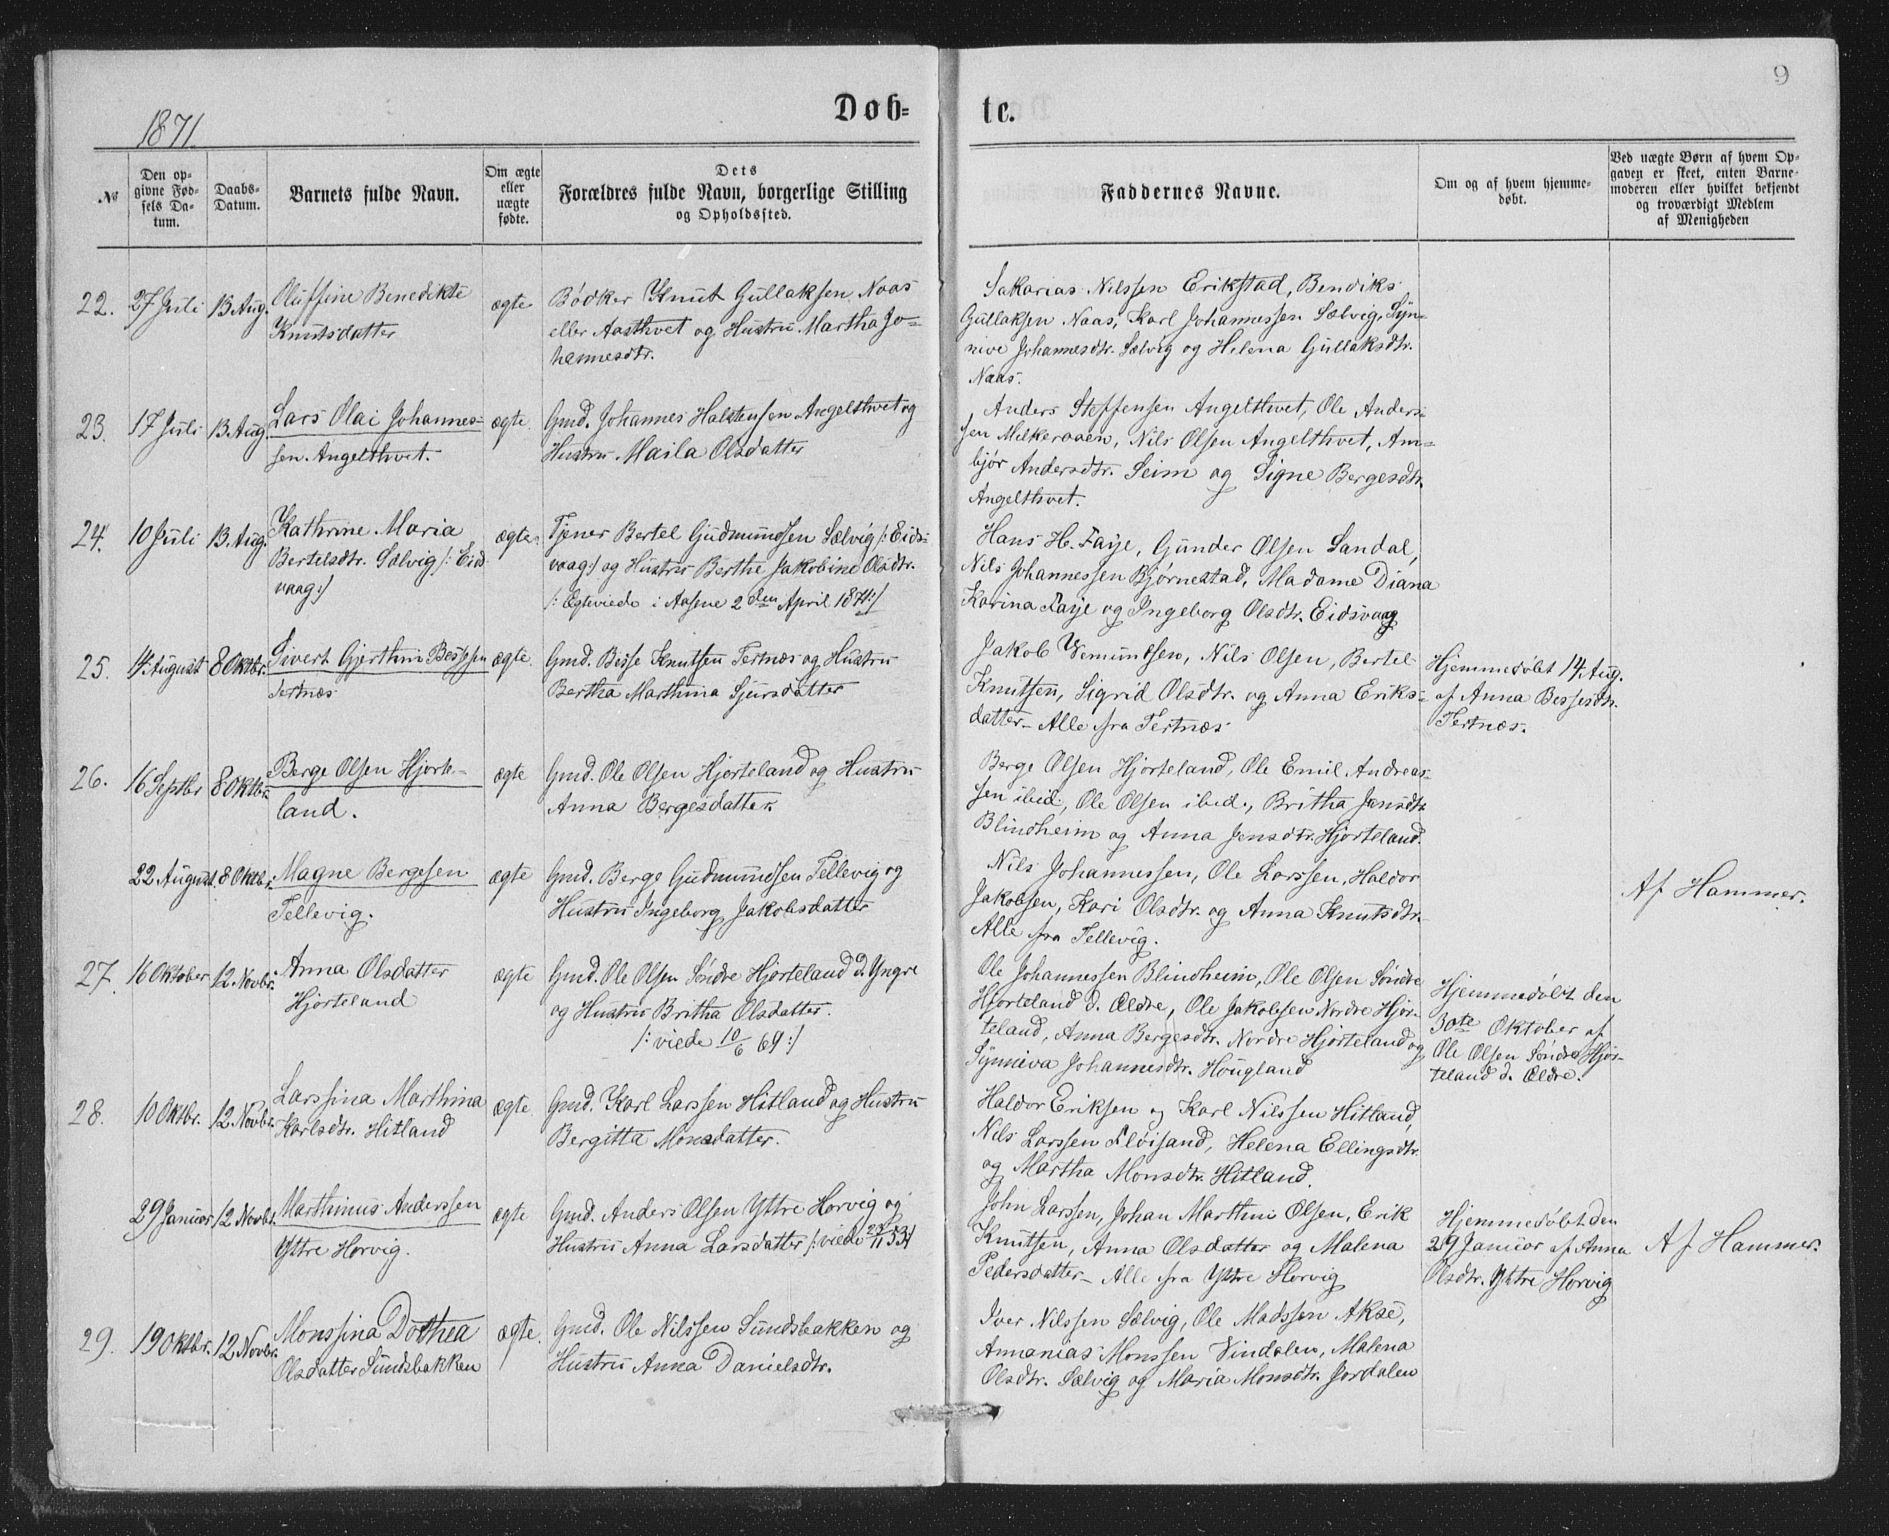 9
Döb-
te.
1871.
No
Den op-
givne Fød-
sels Da-
tum.
Daabs-
Datum.
Barnets fulde Navn.
Om ægte
eller
uægte
fødte.
Dets
Forældres fulde Navn, borgerlige Stilling
og Opholdssted.
Faddernes Navne.
Om og af hvem hjemme-
døbt.
Ved uægte Børn af hvem Op-
gaven er skeet, enten Barne-
moderen eller hvilket bekjendt
og troværdigt Medlem
af Menigheden
22.
27 Juli
13 Aug.
Oluffine Benedikte
Knutsdatter
ægte
Bødker Knut Gullaksen Naas
eller Aasthvet og Hustru Martha Jo-
hannesdtr.
Sakarias Nilssen Erikstad, Bendiks
Gullaksen Naas, Karl Johannessen Sælvig, Syn-
nive Johannesdtr. Sælvig og Helena Gullaksdtr.
Naas.
23.
17 Juli
13 Aug.
Lars Olai Johannes-
sen Angelthvet.
ægte.
Gmd. Johannes Halstensen Angelthvet og
Hustru Maila Olsdatter
Anders Steffensen Angelthvet, Ole Anders-
sen Milkeraaen, Nils Olsen Angelthvet, Am-
bjør Andersdtr. Seim og Signe Bergesdtr.
Angelthvet.
24.
10 Juli
13 Aug.
Kathrine Maria
Bertelsdtr. Sælvig /: Eids
vaag :/
ægte
Tjener Bertel Gudmundsen Sælvig /: Eids-
vaag :/ og Hustru Berthe Jakobine Olsdtr.
/: Egteviede i Aasene 2den April 1871 :/
Hans H. Faye, Gunder Olsen Sandal,
Nils Johannessen Bjørnestad, Madame Diana
Karina Faye og Ingeborg Olsdtr. Eidsvaag
25.
14 August
8 Oktbr.
Sivert Gjerthin Bessesen
Tertnæs
ægte.
Gmd. Besse Knutsen Tertnæs og Hustru
Bertha Marthina Sjursdatter
Jakob Vemundsen, Nils Olsen, Bertel
Knutsen, Sigrid Olsdtr. og Anna Eriks-
datter - Alle fra Tertnæs
Hjemmedøbt 14 Aug.
af Anna Bessesdtr.
Tertnæs.
26.
16 Septbr
8 Oktbr.
Berge Olsen Hjorte-
land.
ægte
Gmd. Ole Olsen Hjorteland og Hustru
Anna Bergesdatter.
Berge Olsen Hjorteland, Ole Emil Andreas-
sen ibid., Ole Olsen ibid., Britha Jensdtr.
Blindheim og Anna Jensdtr. Hjorteland.
22 August.
8 Oktbr.
Magne Bergesen
Tellevig.
ægte
Gmd. Berge Gudmundsen Tellevig og
Hustru Ingeborg Jakobsdatter
Nils Johannessen, Ole Larssen, Haldor
Jakobsen, Kari Olsdtr. og Anna Knutsdtr.
Alle fra Tellevig.
Af Hammer.
27.
16 Oktober
12 Novbr.
Anna Olsdatter
Hjorteland
ægte
Gmd. Ole Olsen Søndre Hjorteland d. Yngre
og Hustru Britha Olsdatter.
/: viede 10/6 69 :/
Ole Johannessen Blindheim, Ole Olsen Søndre
Hjorteland d. Ældre, Ole Jakobsen Nordre Hjor-
teland, Anna Bergesdtr. Nordre Hjorteland og
Synniva Johannesdtr. Hougland
Hjemmedøbt den
30te Oktober af
Ole Olsen Søndre Hjor-
teland d. Ældre.
28.
10 Oktbr.
12 Novbr.
Larssina Marthina
Karlsdtr. Hitland
ægte
Gmd. Karl Larssen Hitland og Hustru
Bergitta Monsdatter.
Haldor Eriksen og Karl Nilssen Hitland,
Nils Larssen Fløisand, Helena Ellingsdtr.
og Martha Monsdtr. Hitland.
29 Januar
12 Novbr.
Marthinus Anderssen
Yttre Horvig.
ægte
Gmd. Anders Olsen Yttre Horvig og
Hustru Anna Larsdatter /: viede 11 53 :/
John Larssen, Johan Martin Olsen, Erik
Knutsen, Anna Olsdatter og Malena
Pedersdatter - Alle fra Yttre Horvig
Hjemmedøbt den
29 Januar af Anna
Olsdtr. Yttre Horvig
Af Hammer.
29.
19 Oktbr.
12 Novbr.
Monssina Dothea
Olsdatter Sundsbakken
ægte.
Gmd. Ole Nilssen Sundsbakken og
Hustru Anna Danielsdtr.
Iver Nilssen Sælvig, Ole Madssen Akse,
Annanias Monssen Vindalen, Malena
Olsdtr. Sælvig og Maria Monsdtr. Jordalen